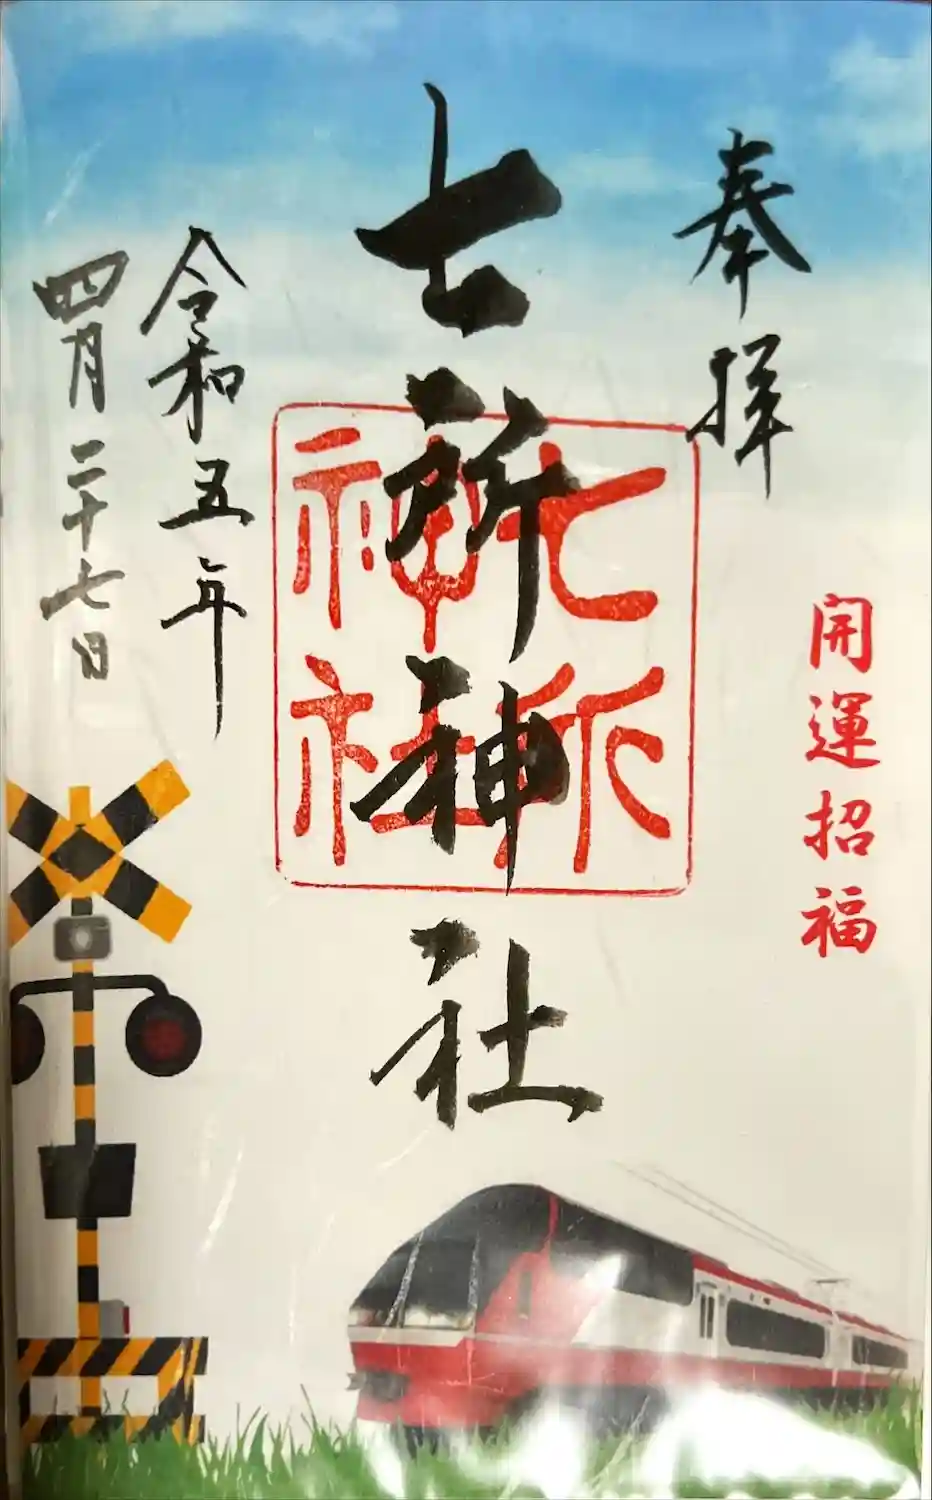 奉拝
開運招福
七所神社
七所
神社
令和五年
四月二十七日